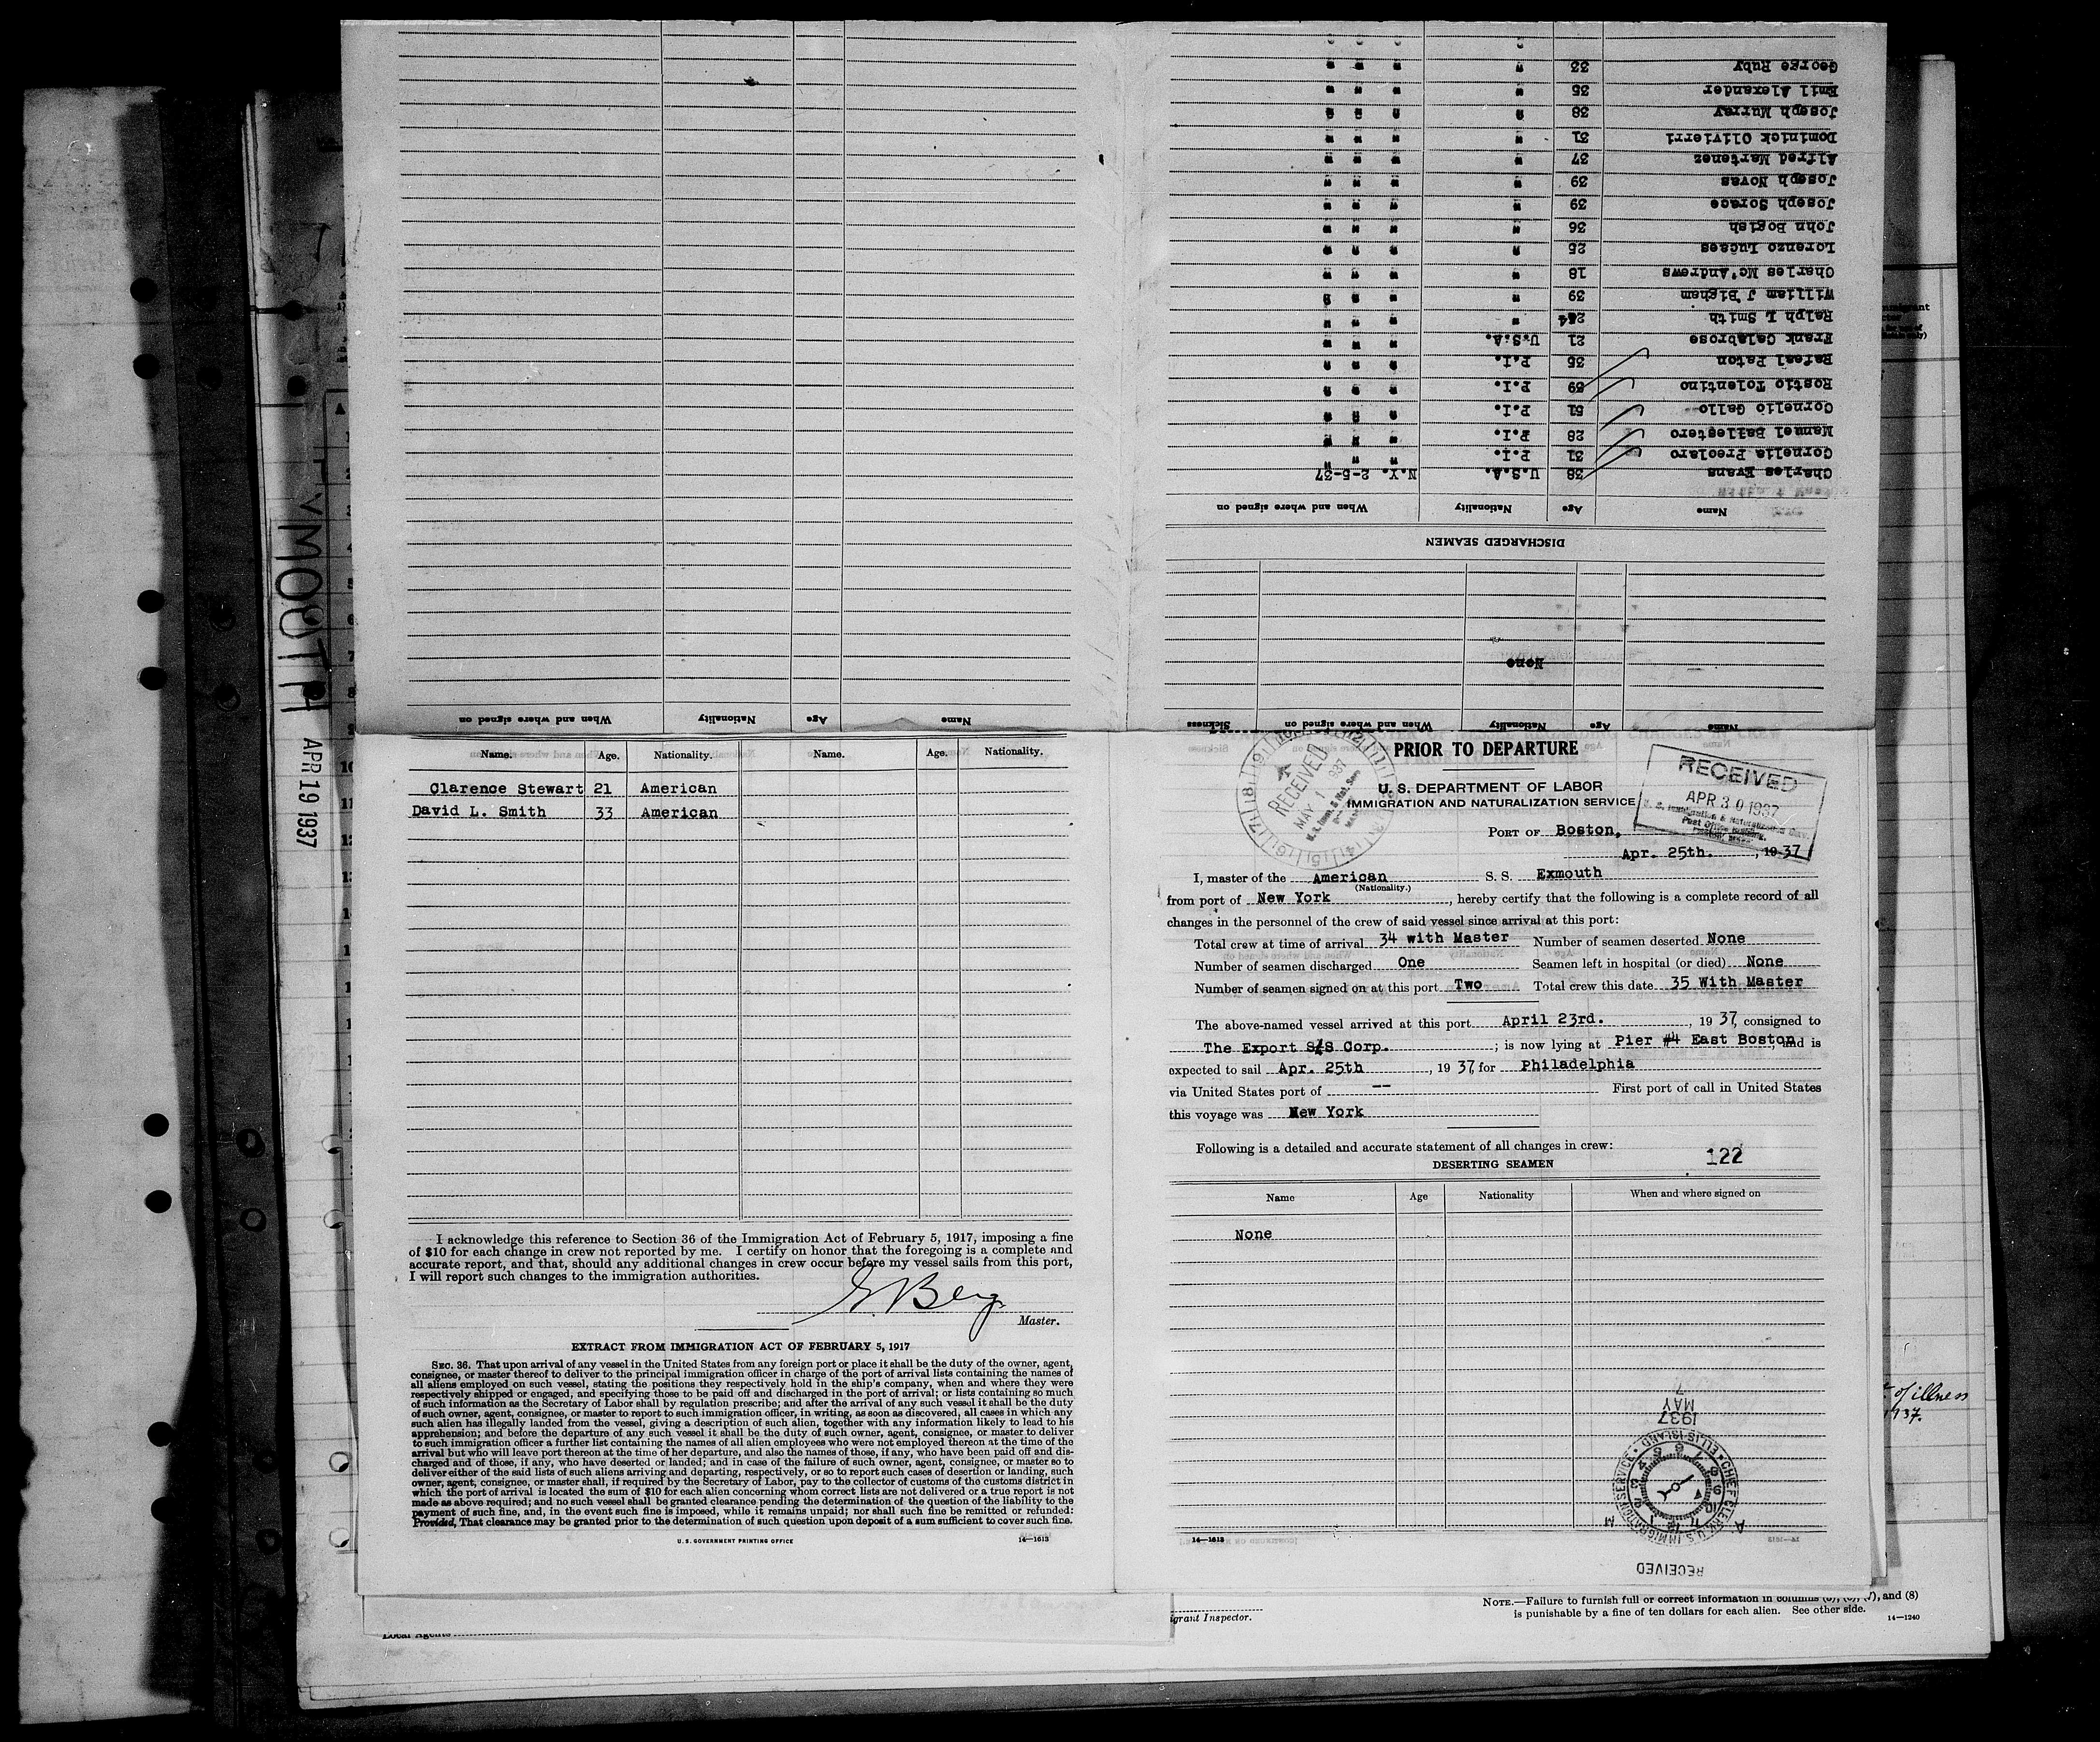 Name. Age. Nationality. Name. Age. Nationality.
Clarence Stewart 21 American
David L. Smith 33 American
I acknowledge this reference to Section 36 of the Immigration Act of February 5, 1917, imposing a fine
of $10 for each change in crew not reported by me. I certify on honor that the foregoing is a complete and
accurate report, and that, should any additional changes in crew occur before my vessel sails from this port,
I will report such changes to the immigration authorities.
Master.
EXTRACT FROM IMMIGRATION ACT OF FEBRUARY 5, 1917
SEC. 36. That upon arrival of any vessel in the United States from any foreign port or place it shall be the duty of the owner, agent,
consignee, or master thereof to deliver to the principal immigration officer in charge of the port of arrival lists containing the names of
all aliens employed on such vessel, stating the positions they respectively hold in the ship's company, when and where they were
respectively shipped or engaged, and specifying those to be paid off and discharged in the port of arrival; or lists containing so much
of such information as the Secretary of Labor shall by regulation prescribe; and after the arrival of any such vessel it shall be the duty
of such owner, agent, consignee, or master to report to such immigration officer, in writing, as soon as discovered, all cases in which any
such alien has illegally landed from the vessel, giving a description of such alien, together with any information likely to lead to his
apprehension; and before the departure of any such vessel it shall be the duty of such owner, agent, consignee, or master to deliver
to such immigration officer a further list containing the names of all alien employees who were not employed thereon at the time of the
arrival but who will leave port thereon at the time of her departure, and also the names of those, if any, who have been paid off and dis-
charged and of those, if any, who have deserted or landed; and in case of the failure of such owner, agent, consignee, or master so to
deliver either of the said lists of such aliens arriving and departing, respectively, or so to report such cases of desertion or landing, such
owner, agent, consignee, or master shall, if required by the Secretary of Labor, pay to the collector of customs of the customs district in
which the port of arrival is located the sum of $10 for each alien concerning whom correct lists are not delivered or a true report is not
made as above required; and no such vessel shall be granted clearance pending the determination of the question of the liability to the
payment of such fine, and, in the event such fine is imposed, while it remains unpaid; nor shall such fine be remitted or refunded:
Provided, That clearance may be granted prior to the determination of such question upon deposit of a sum sufficient to cover such fine.
U. S. GOVERNMENT PRINTING OFFICE 14—1613
PRIOR TO DEPARTURE
U. S. DEPARTMENT OF LABOR
IMMIGRATION AND NATURALIZATION SERVICE
RECEIVED
MAY 1 1937
RECEIVED
APR 30 1937
PORT OF Boston,
Apr. 25th. , 1937
I, master of the American S. S. Exmouth
(Nationality.)
from port of New York , hereby certify that the following is a complete record of all
changes in the personnel of the crew of said vessel since arrival at this port:
Total crew at time of arrival 34 with Master Number of seamen deserted None
Number of seamen discharged One Seamen left in hospital (or died) None
Number of seamen signed on at this port Two Total crew this date 35 With Master
The above-named vessel arrived at this port April 23rd. , 19 37, consigned to
The Export S/S Corp. ; is now lying at Pier #4 East Boston, and is
expected to sail Apr. 25th , 19 37, for Philadelphia
via United States port of -- First port of call in United States
this voyage was New York
Following is a detailed and accurate statement of all changes in crew:
DESERTING SEAMEN 122
Name Age Nationality When and where signed on
None
14—1613
1937
MAY
7
CHIEF CLERK, U.S. IMMIGRATION SERVICE
ELLIS ISLAND
RECEIVED
Name Age Nationality When and where signed on Sickness
None
DISCHARGED SEAMEN
Name Age Nationality When and where signed on
Charles Evans 38 U.S.A. N.Y. 2-5-37
Cornelia Preolaro 31 P.I. " " "
Manuel Ballestero 28 P.I. " " "
Cornelio Gallo 51 P.I. " " "
Rostio Tolentino 39 P.I. " " "
Rafael Paton 35 P.I. " " "
Frank Calabrose 21 U.S.A. " " "
Ralph L Smith " " " "
William J Bigham 39 " " " "
Charles Mc'Andrews 18 " " " "
Lorenzo Lucaes 25 " " " "
John Bogish 36 " " " "
Joseph Sorace 39 " " " "
Joseph Novas 39 " " " "
Alfred Martenez 37 " " " "
Dominick Olivierri 31 " " " "
Joseph Murray 38 " " " "
Emil Alexander 35 " " " "
George Ruby 32 " " " "
Name Age Nationality When and where signed on
MOUTH APR 19 1937
of illness
1937.
grant Inspector.
NOTE.—Failure to furnish full or correct information in columns and (8)
is punishable by a fine of ten dollars for each alien. See other side.
14—1240